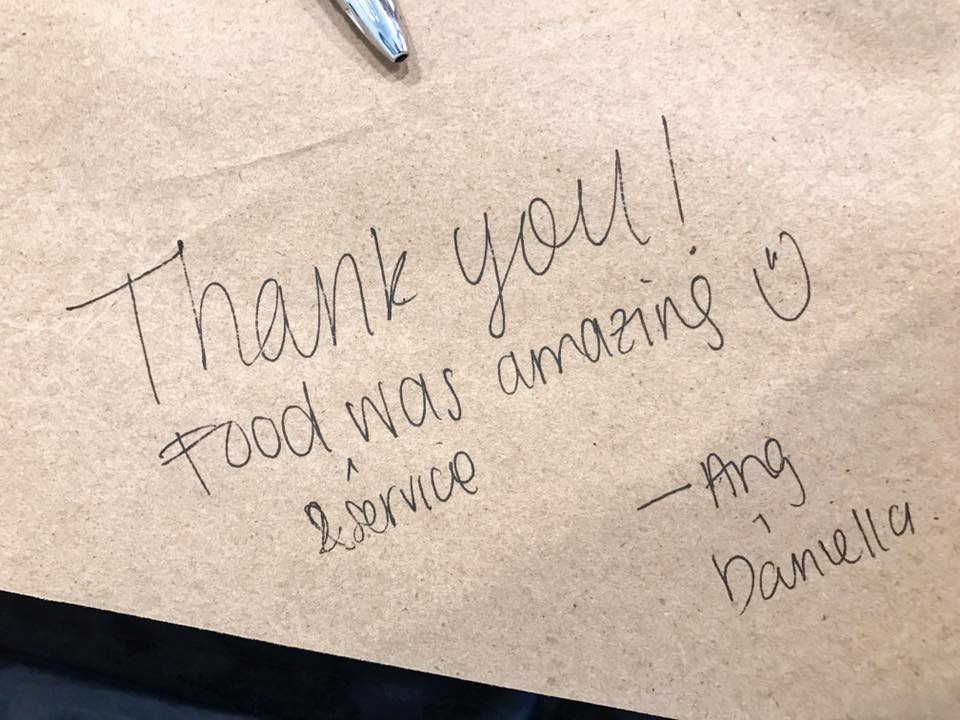 Thank you!
Food was amazing
^
& service
— Ang
^
Daniella.